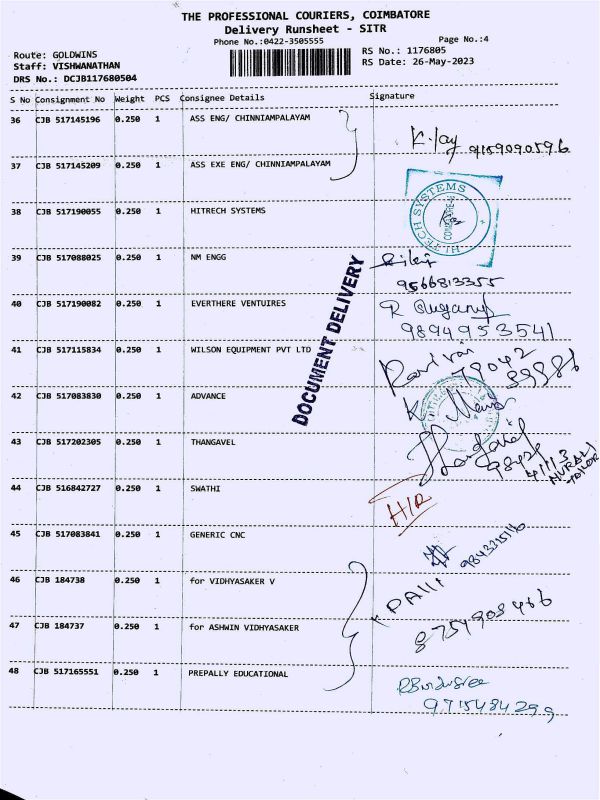 THE PROFESSIONAL COURIERS, COIMBATORE
Delivery Runsheet - SITR
Phone No.:0422-3505555
Page No.:4
Route: GOLDWINS
Staff: VISHWANATHAN
DRS No.: DCJB117680504
RS No.: 1176805
RS Date: 26-May-2023
S No Consignment No Weight PCS Consignee Details Signature
36 CJB 517145196 0.250 1 ASS ENG/ CHINNIAMPALAYAM
K. Jay 9159090596
37 CJB 517145209 0.250 1 ASS EXE ENG/ CHINNIAMPALAYAM
HI TECH SYSTEMS
38 CJB 517190055 0.250 1 HITRECH SYSTEMS
39 CJB 517088025 0.250 1 NM ENGG
9566813355
40 CJB 517190082 0.250 1 EVERTHERE VENTUIRES
9894953541
41 CJB 517115834 0.250 1 WILSON EQUIPMENT PVT LTD
DOCUMENT DELIVERY
42 CJB 517083830 0.250 1 ADVANCE
43 CJB 517202305 0.250 1 THANGAVEL
Thangavel
44 CJB 516842727 0.250 1 SWATHI
H/R
45 CJB 517083841 0.250 1 GENERIC CNC
46 CJB 184738 0.250 1 for VIDHYASAKER V
47 CJB 184737 0.250 1 for ASHWIN VIDHYASAKER
48 CJB 517165551 0.250 1 PREPALLY EDUCATIONAL
9715484299